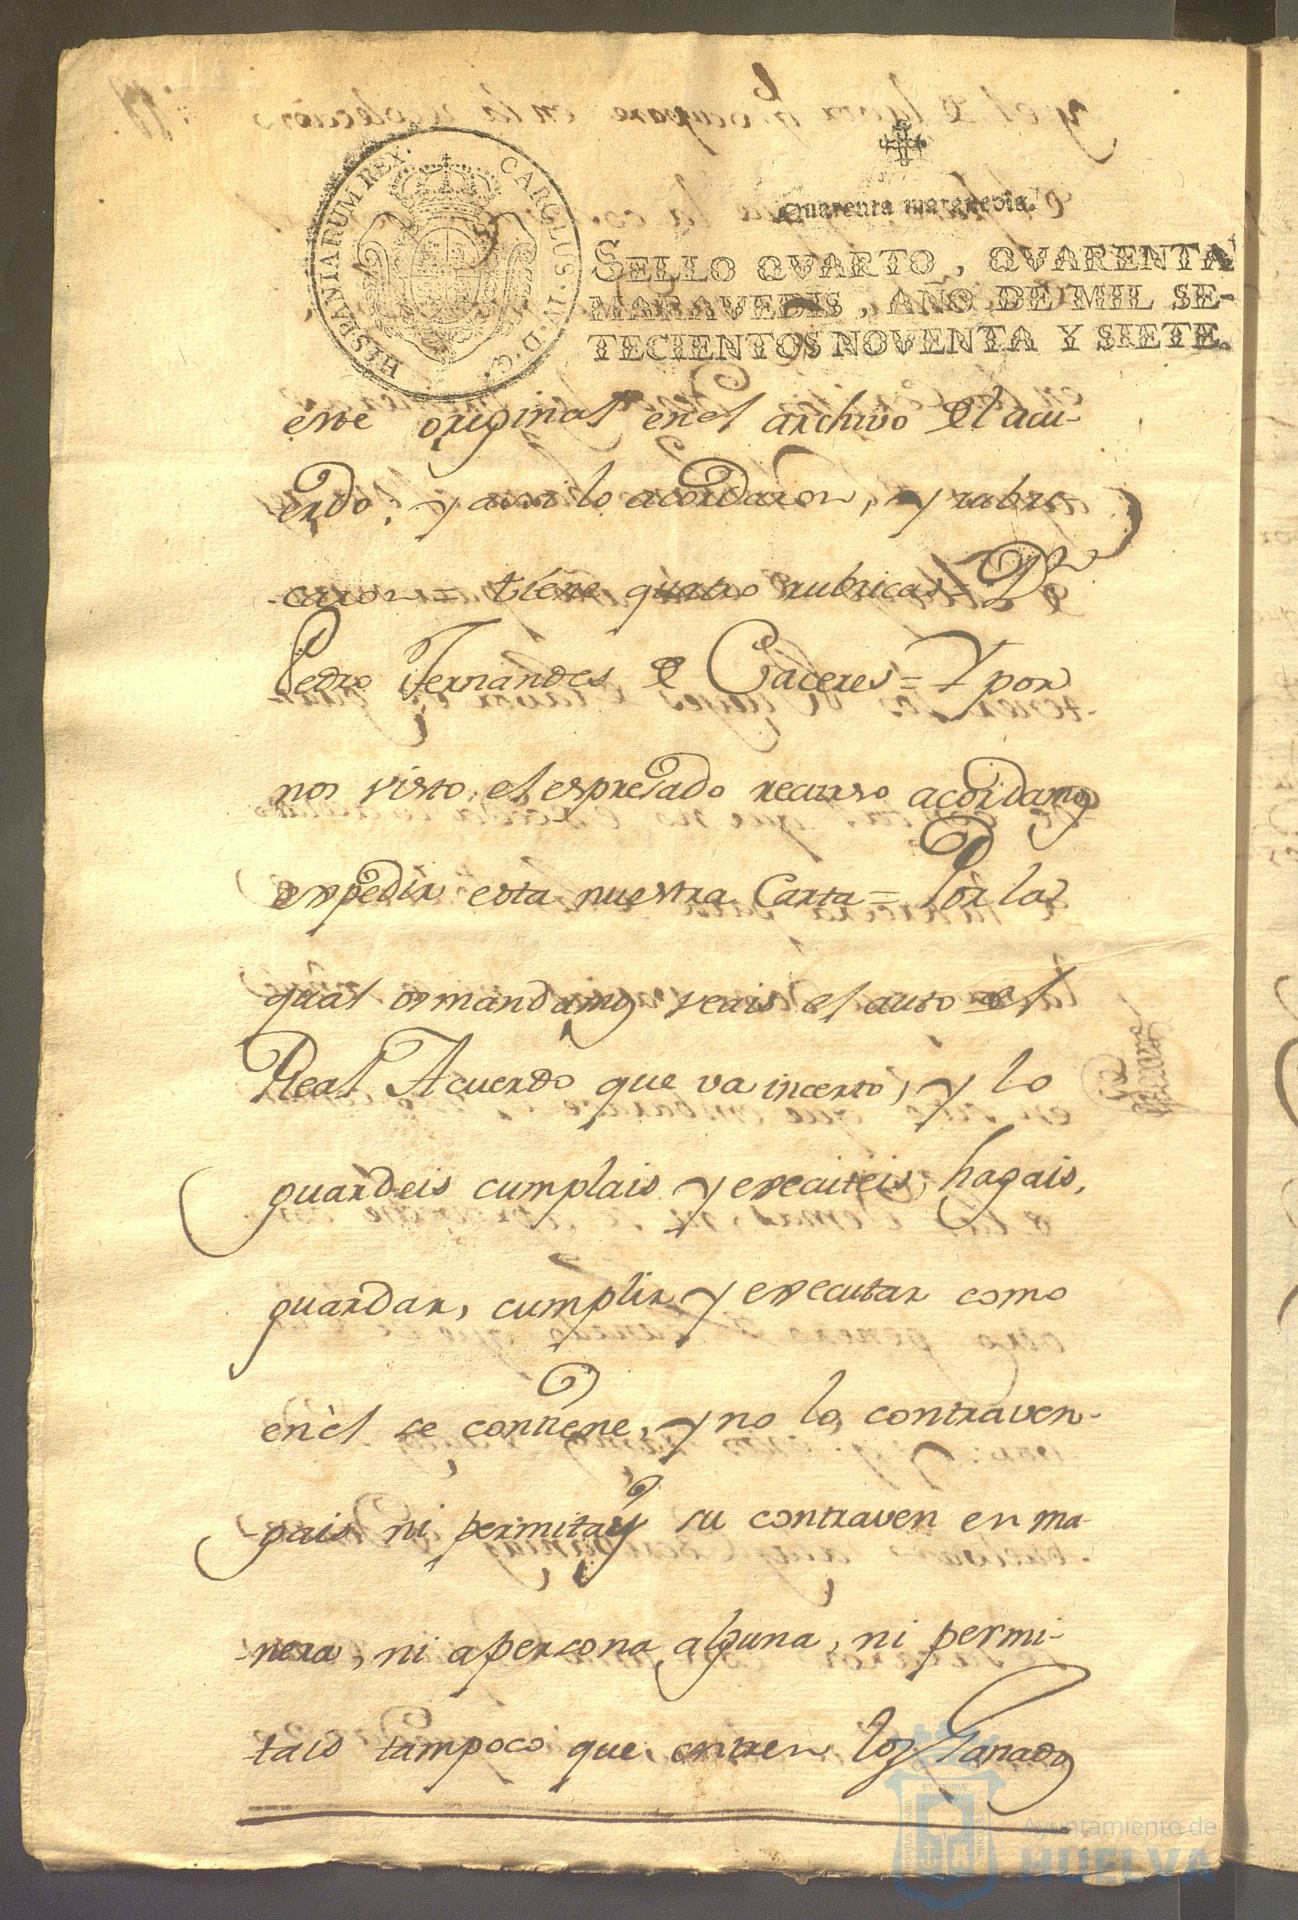 HISPANIARUM REX. CAROLUS. IV. D. G.
Quarenta maravedis.
SELLO QVARTO, QVARENTA
MARAVEDIS, AÑO DE MIL SE-
TECIENTOS NOVENTA Y SIETE.
este original en el archivo del acu-
erdo, y asi lo acordaron, y rubri-
caron = tiene quatro rubricas = Dn
Pedro Fernandes de Caceres = Y por
nos visto el espresado recurso acordamos
expedir esta nuestra Carta = Por la
qual os mandamos veais el auto del
Real Acuerdo que va incerto, y lo
guardeis cumplais y executeis, hagais,
guardar, cumplir y executar como
en èl se contiene, y no lo contraven-
gais ni permitays su contraven en ma-
nera, ni a persona alguna, ni permi-
tais tampoco que entren los Ganados
Ayuntamiento de
HUELVA